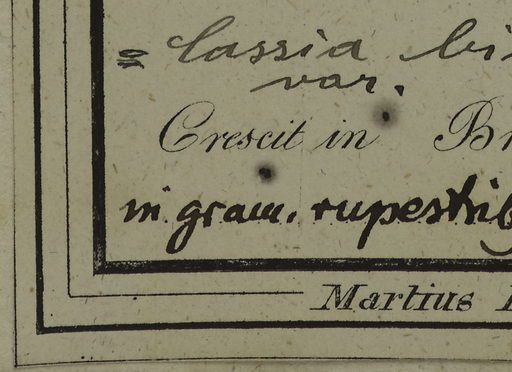 = Cassia bi
var.
Crescit in Br
in gram. rupestrib
Martius